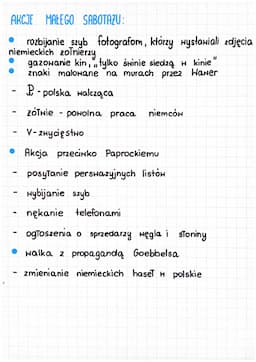 AKCJE MAŁEGO SABOTAŻU:
• rozbijanie szyb fotografom, którzy wystawiali zdjęcia
niemieckich żołnierzy
• gazowanie kin, "tylko świnie siedzą w kinie"
• znaki malowane na murach przez Wawer
- P - polska walcząca
- żółwie - powolna praca niemców
- V - zwycięstwo
• Akcja przeciwko Paprockiemu
- posyłanie perswazyjnych listów
- wybijanie szyb
- nękanie telefonami
- ogłoszenia o sprzedaży węgla i słoniny
• walka z propagandą Goebbelsa
- zmienianie niemieckich haseł w polskie